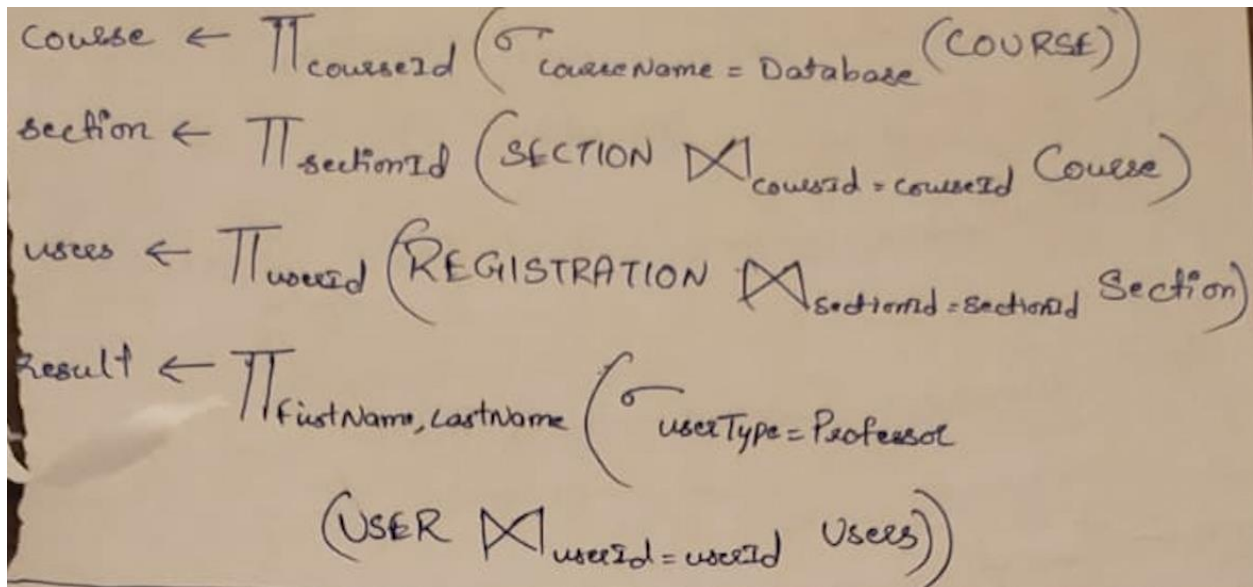 Course ← π courseId (σ courseName = Database (COURSE))
section ← π sectionId (SECTION ⋈ coursId = courseId Course)
users ← π userId (REGISTRATION ⋈ sectionId = sectionId Section)
Result ← π FirstName, LastName (σ userType = Professor
(USER ⋈ userId = userId Users))